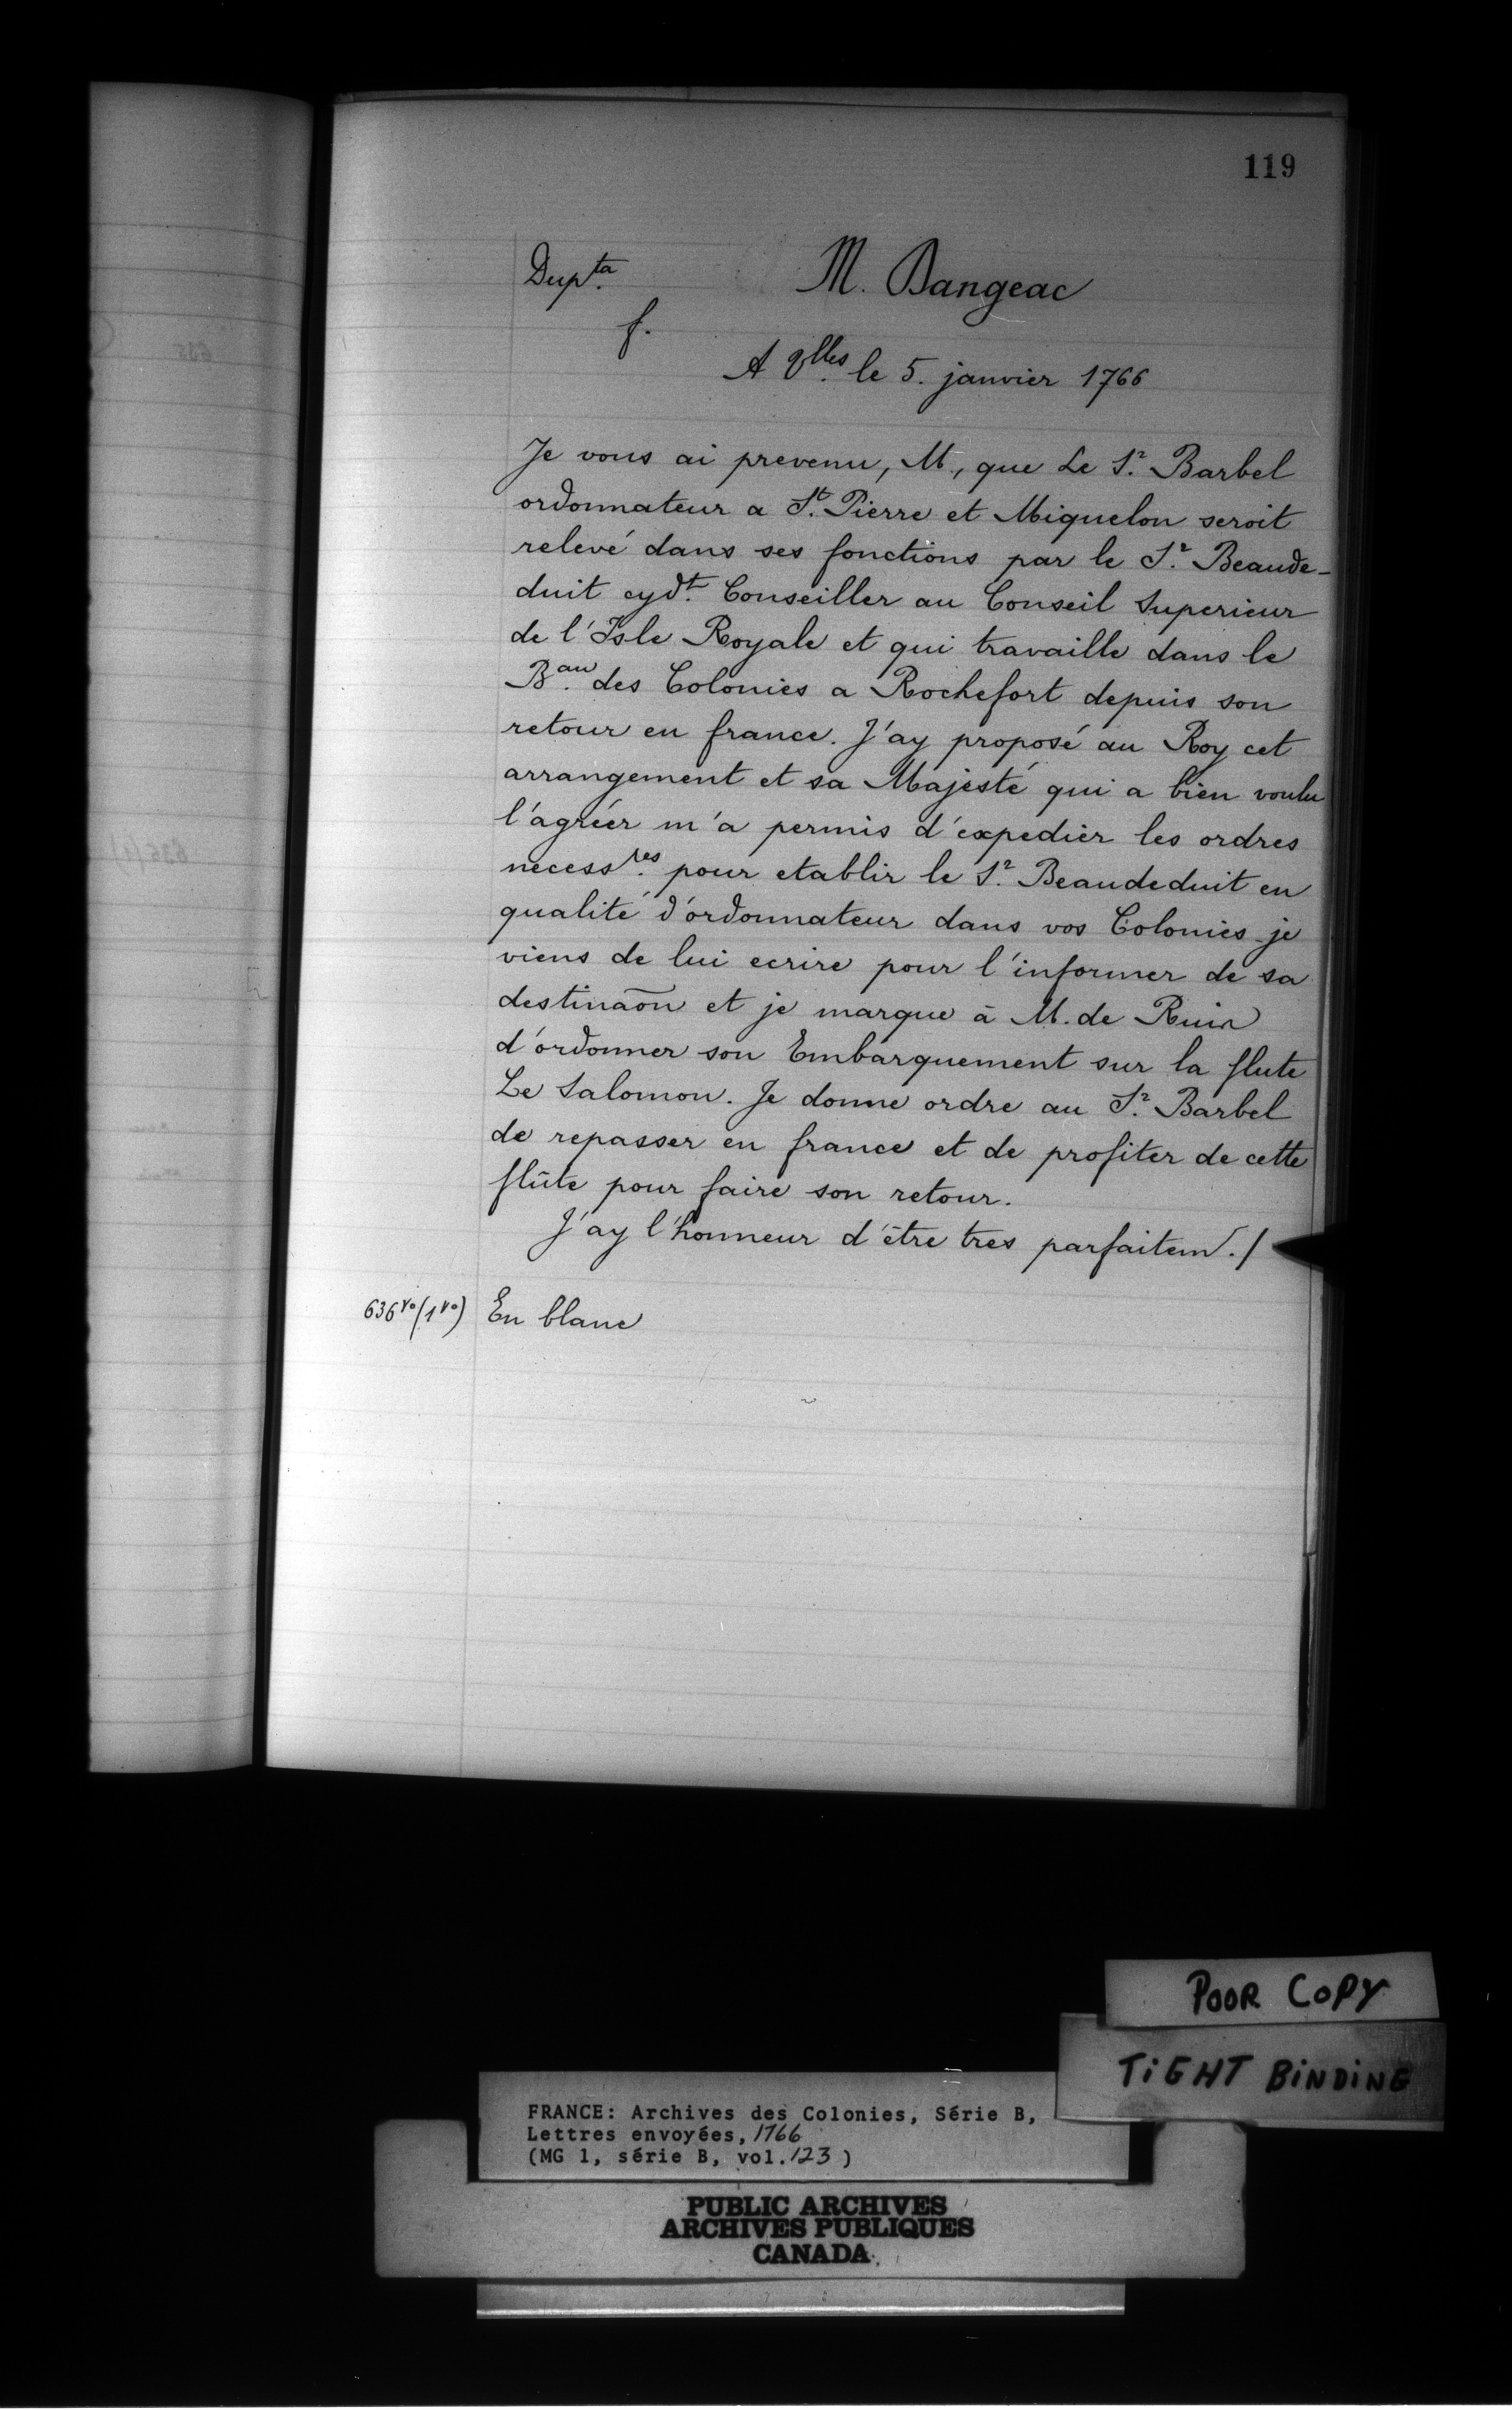 119
Dup.ta M. Dangeac
f.
A Vlles. le 5. janvier 1766
Je vous ai prevenu, M, que Le Sr. Barbel
ordonnateur a St. Pierre et Miquelon seroit
relevé dans ses fonctions par le Sr. Beaude-
duit cydt. Conseiller au Conseil Superieur
de l'Isle Royale et qui travaille dans le
Bau. des Colonies a Rochefort depuis son
retour en france. J'ay proposé au Roy cet
arrangement et sa Majesté qui a bien voulu
l'agréer m'a permis d'expedier les ordres
necessres. pour etablir le Sr. Beaudeduit en
qualité d'ordonnateur dans vos Colonies je
viens de lui ecrire pour l'informer de sa
destinaõn et je marque à M. de Ruis
d'ordonner son Embarquement sur la flute
Le Salomon. Je donne ordre au Sr. Barbel
de repasser en france et de profiter de cette
flûte pour faire son retour.
J'ay l'honneur d'être tres parfaitem./
636 vo (1 vo) En blanc
POOR COPY
TiGHT BiNDiNG
FRANCE: Archives des Colonies, Série B,
Lettres envoyées, 1766
(MG 1, série B, vol. 123)
PUBLIC ARCHIVES
ARCHIVES PUBLIQUES
CANADA